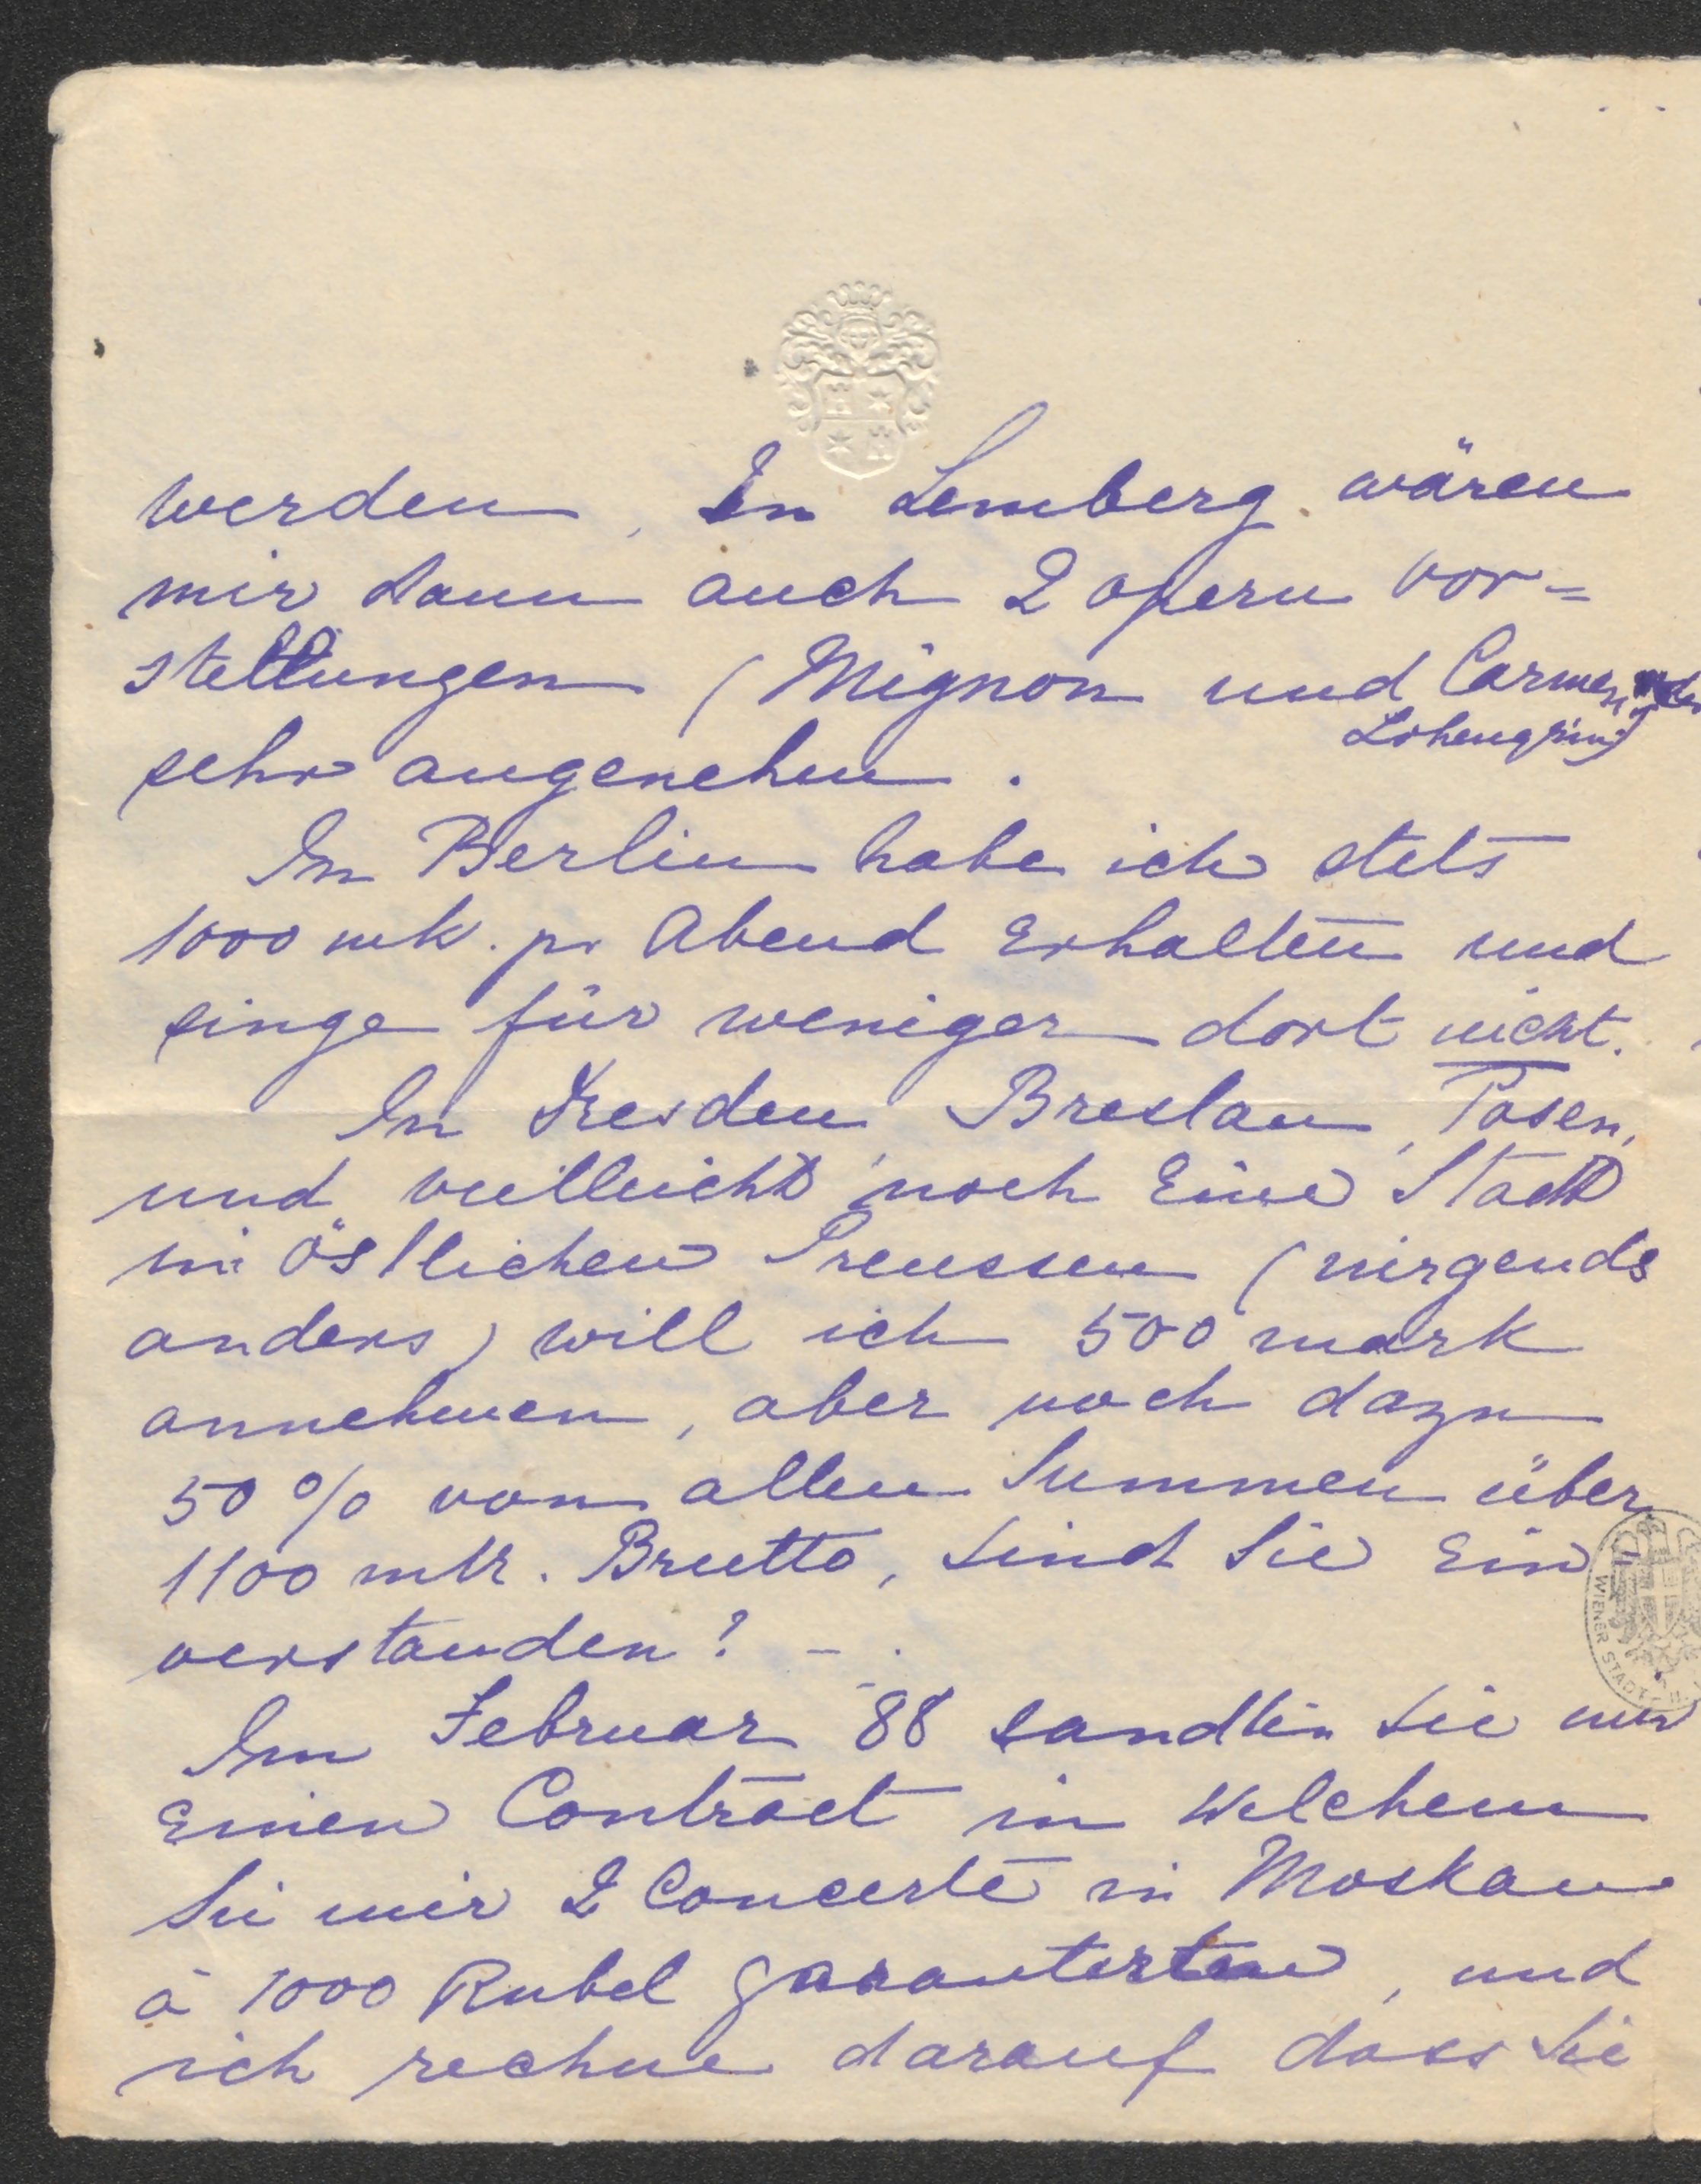 werden. In Lemberg wären
mir dann auch 2 opern vor=
stellungen (Mignon und Carmen, oder
Lohengrin)
sehr angenehm.
In Berlin habe ich stets
1000 mk. pr Abend erhalten und
singe für weniger dort nicht.
In Dresden, Breslau, Posen,
und veilleicht noch Eine Stadt
im östlichen Preussen (nirgends
anders) will ich 500 mark
annehmen, aber noch dazu
50 % von allen Summen über
1100 mk. Brutto, sind Sie Ein
verstanden? –
Im Februar 88 sandten Sie mir
Einen Contract in Welchem
Sie mir 2 Concerte in Moskau
à 1000 Rubel garantirten, und
ich rechne darauf dass Sie
WIENER STADT